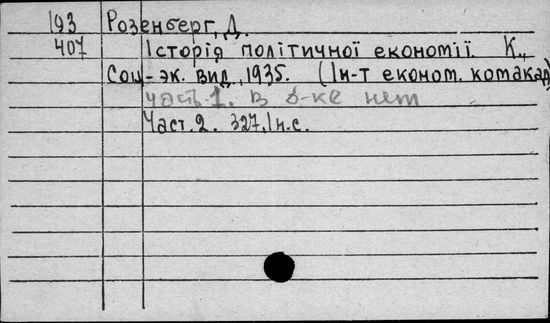 193 Розенберг, Д.
407 Історія політичної економії. К.,
Соц-эк. вид, 1935. (Ін-т економ. комакад)
част. 1. в б-ке нет
Част. 2. 327, Iн.с.